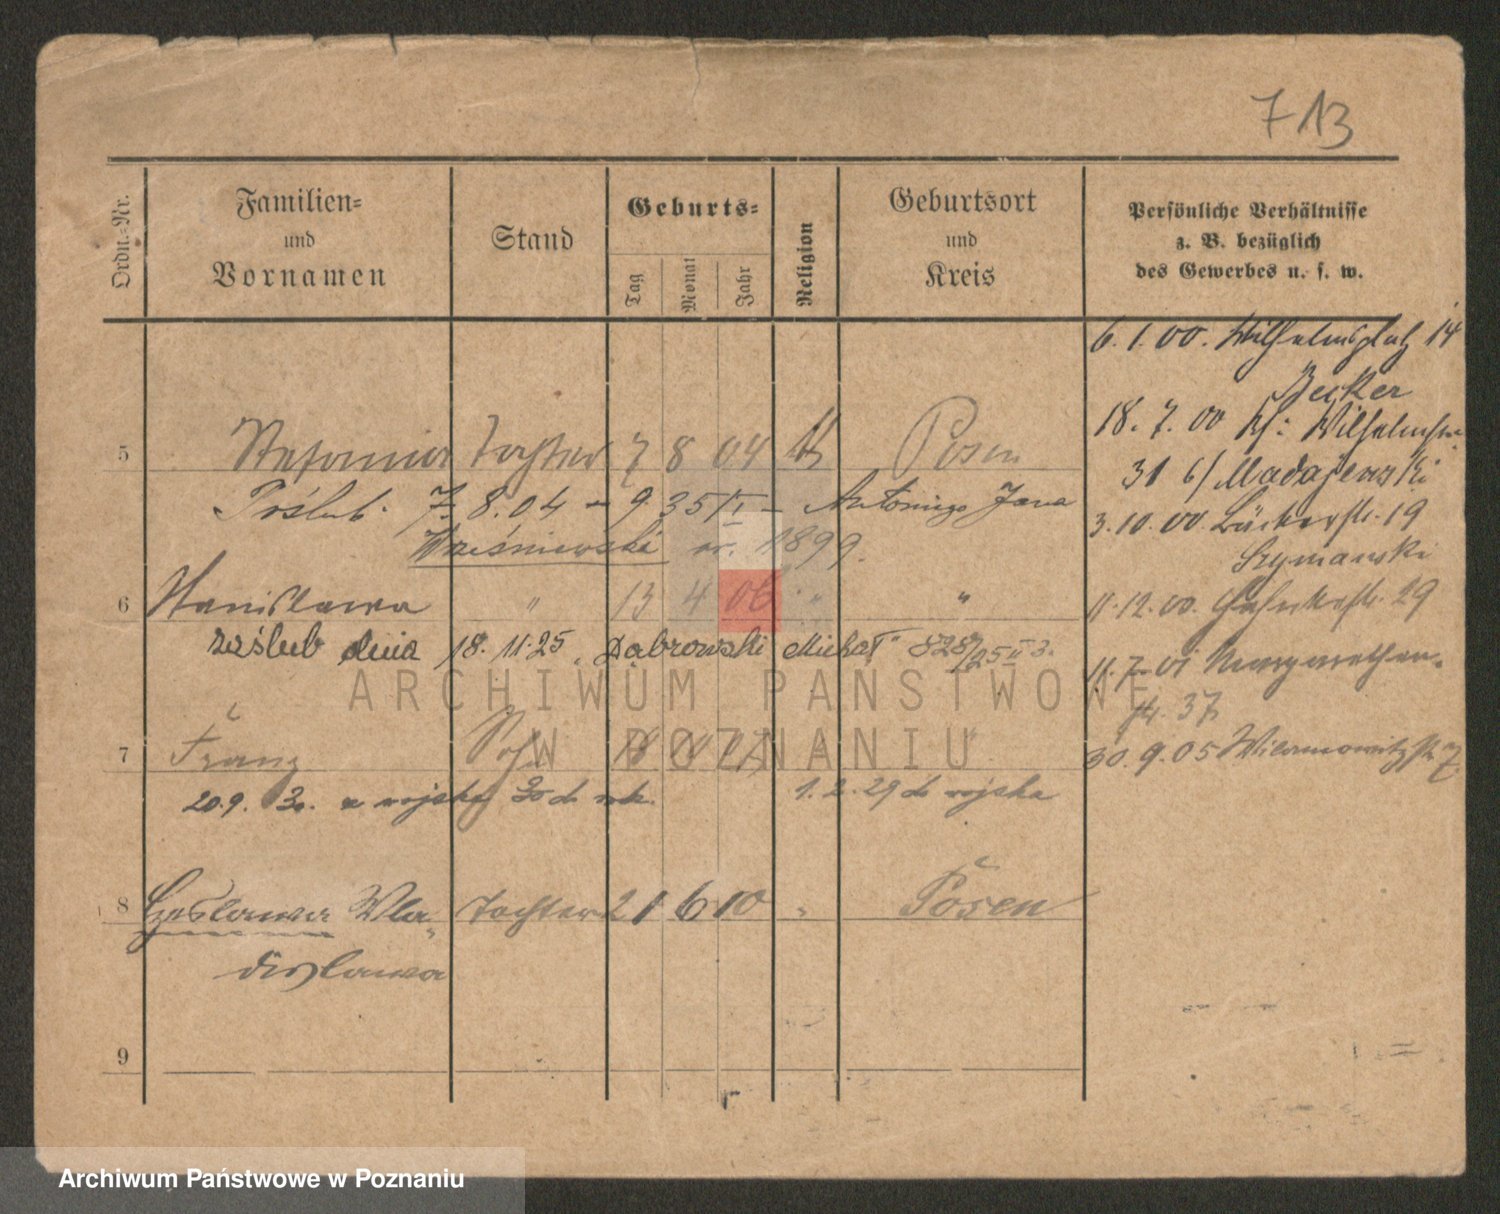 713
Ordn.-Nr.
Familien-
und
Vornamen
Stand
Geburts-
Tag
Monat
Jahr
Religion
Geburtsort
und
Kreis
Persönliche Verhältnisse
z. B. bezüglich
des Gewerbes u. s. w.
6. 1. 00. Wilhelmsplatz 14
Becker
18. 7. 00 Wilhelmstr.
31 6/ Madajewski
3. 10. 00. Bäckerstr. 19
Szymanski
11. 12. 00. 29
11. 7. 01 Margarethen-
str. 37
30. 9. 05 Wilamowitzstr. 7
5 Stefania Tochter 7 8 04 Posen
7. 8. 04 - 9. 35 - Antoniego Jana
Wrześniewski ur. 1899.
6 Stanislawa " 13 4 06 " "
zaślub dnia 18. 11. 25 Dąbrowski Michał 828/25 II 3.
ARCHIWUM PAŃSTWOWE
W POZNANIU
7 Franz Sohn
20. 9. 30. z wojska 1. 2. 29 do wojska
8 Czeslawa Wla- Tochter 21 6 10 " Posen
dislawa
9
Archiwum Państwowe w Poznaniu